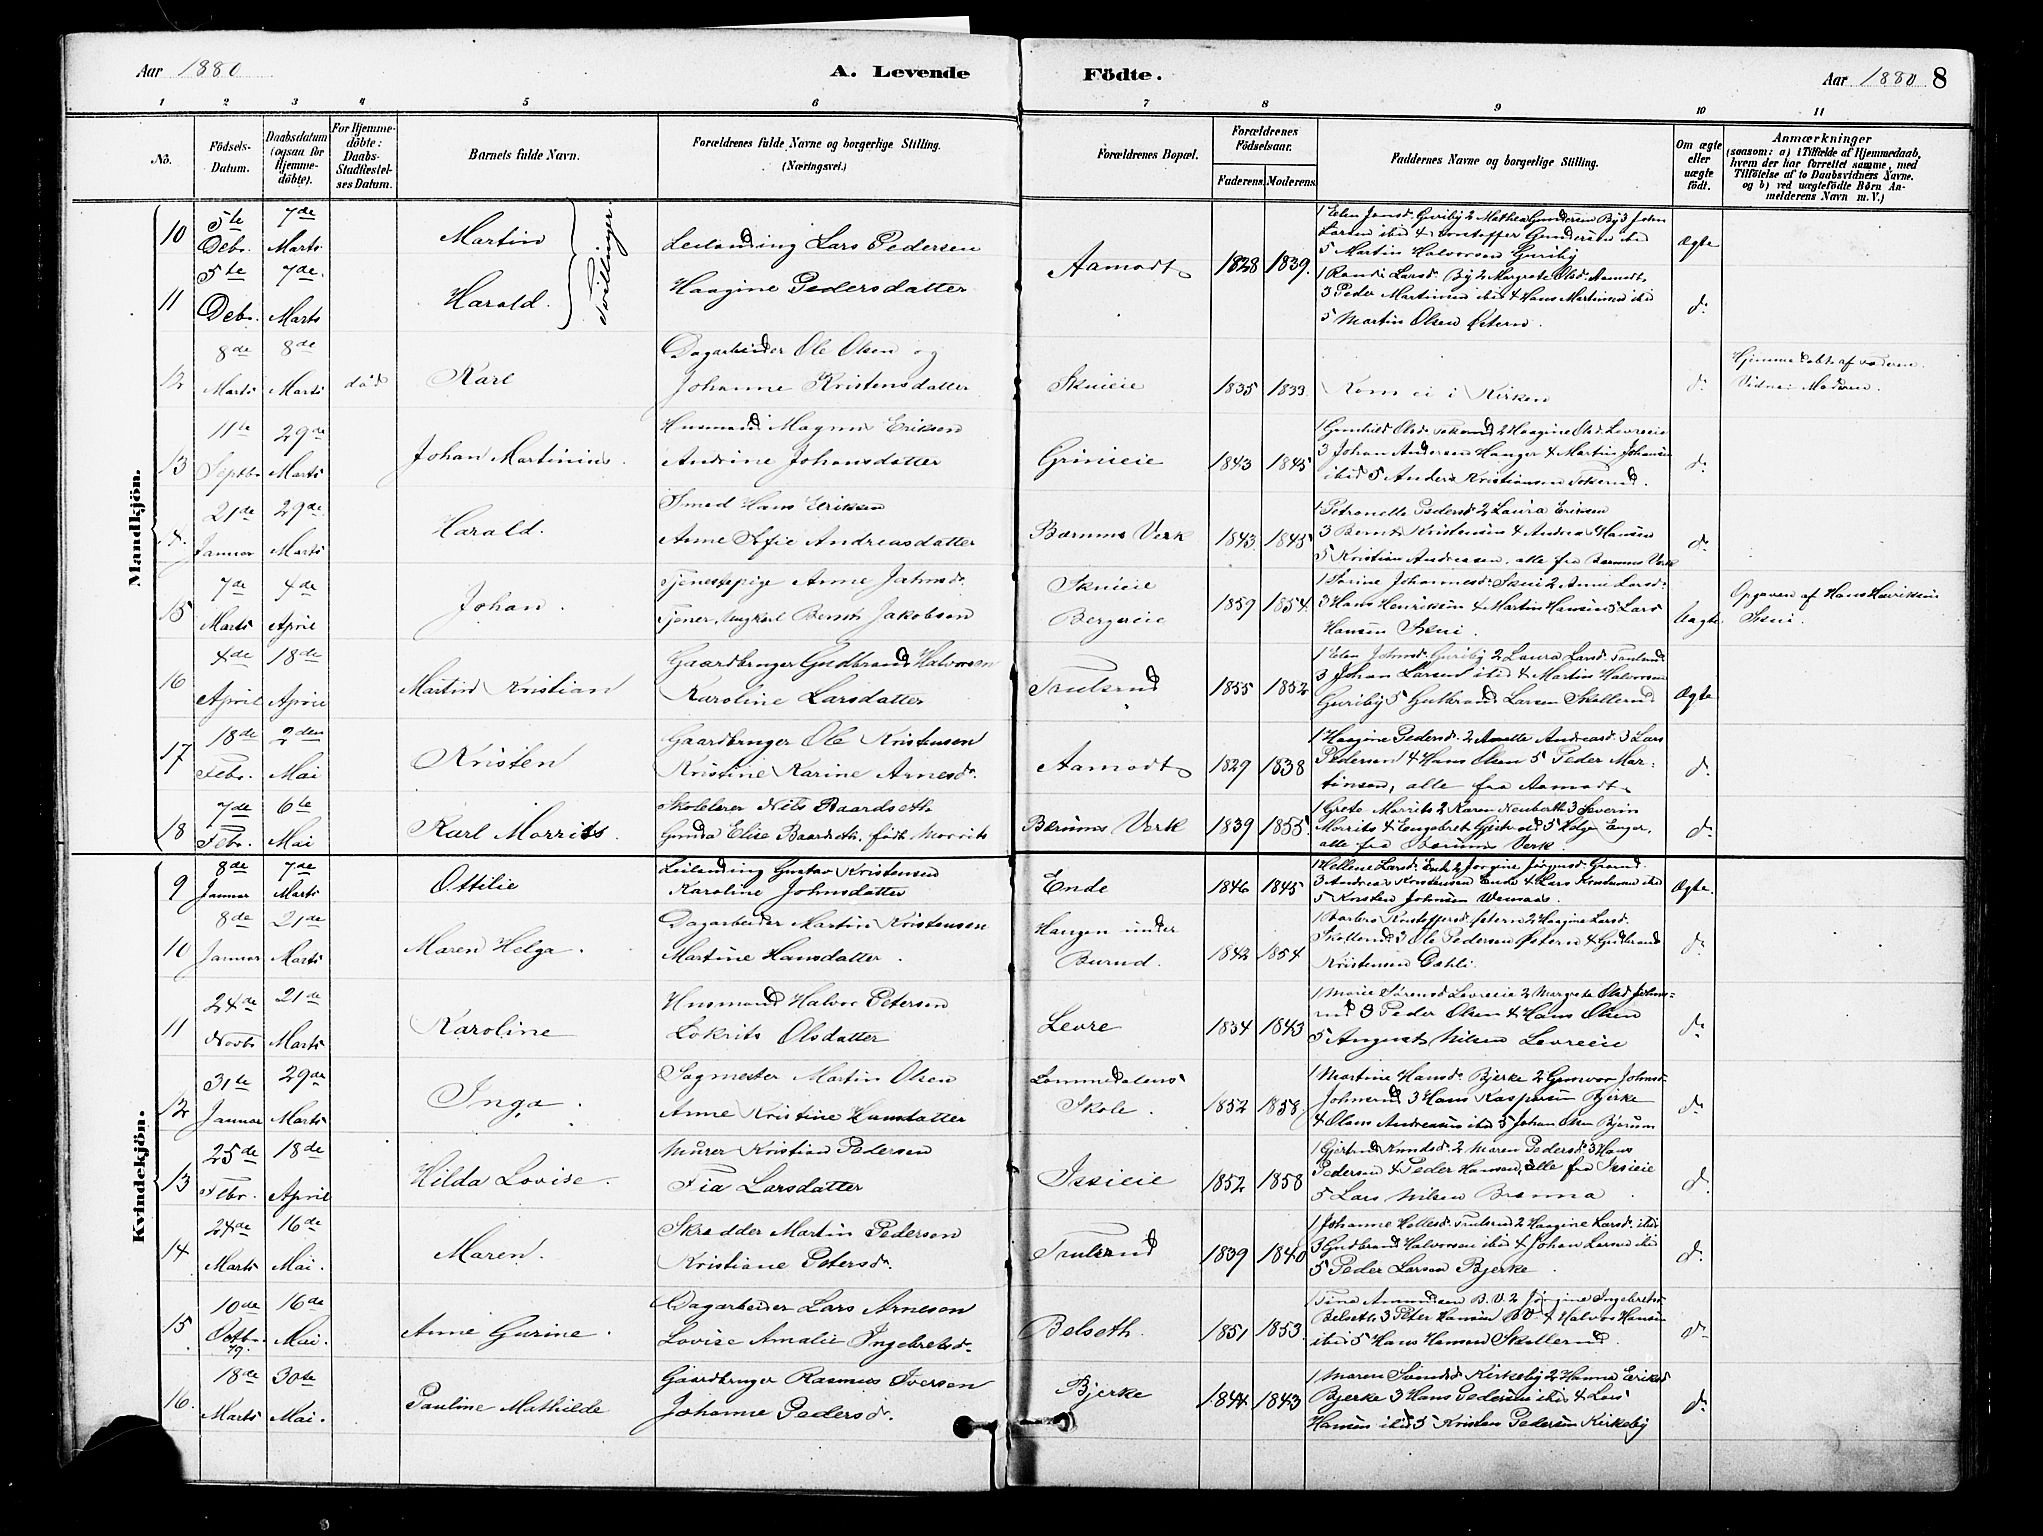 Aar 1880
A. Levende
Födte.
Aar 1880 8
1 2 3 4 5 6 7 8 9 10 11
No.
Födsels-
Datum.
Daabsdatum
(ogsaa for
Hjemme-
döbte).
For Hjemme-
döbte:
Daabs-
Stadfæstel-
ses Datum.
Barnets fulde Navn.
Forældrenes fulde Navne og borgerlige Stilling.
(Næringsvei.)
Forældrenes Bopæl.
Forældrenes
Födselsaar.
Faderens. Moderens.
Faddernes Navne og borgerlige Stilling.
Om ægte
eller
uægte
födt.
Anmærkninger
(saasom: a) i Tilfælde af Hjemmedaab,
hvem der har forrettet samme, med
Tilföielse af to Daabsvidners Navne.
og b) ved uægtefödte Börn An-
melderens Navn m. V.)
Mandkjön.
10 5te Debr. 7de Marts Martin
Tvillinger.
Leilænding Lars Pedersen
Haagine Pedersdatter
Aamodt 1828 1839.
1 Elen Jonsd. Guriby 2 Mathea Gundersen By 3 John
Larsen ibid 4 Kristoffer Gundersen ibid
5 Martin Halvorsen Guriby
Ægte
11 5te Debr. 7de Marts Harald.
1 Randi Larsd. By 2 Margrete Olsd. Aamodt
3 Peder Martinsen ibid 4 Hans Martinsen ibid
5 Martin Olsen Østern.
do
12 8de Marts 8de Marts død Karl
Dagarbeider Ole Olsen og
Johanne Kristensdatter
Skuieie 1835 1833
Kom ei i Kirken
do
Hjemmedøbt af Faderen.
Vidne: Moderen.
13 11te Septbr. 29de Marts Johan Martinius.
Husmand Magnus Eriksen
Andrine Johansdatter
Grinieie 1843 1845
1 Gunhild Olsd. 2 Haagine Olsd. Levreeie
3 Johan Andersen Hanger 4 Martin Johansen
ibid 5 Anders Kristiansen
do
21de Januar 29de Marts Harald.
Smed Hans Eriksen
Anne Sofie Andreasdatter
Bærums Verk 1843 1845
1 Petronelle Pedersd 2 Laura Eriksen
3 Bernt Kristensen 4 Andreas Hansen
5 Kristian Andreasen, alle fra Bærums Verk
do
15 7de Marts 4de April Johan.
Tjenestepige Anne Johnsd.
Tjener, Ungkarl Bernt Jakobsen
Skuieie
Bergseie
1859 1854.
1 Karine Johannesd. Skui 2 Anne Larsd.
3 Hans Henriksen 4 Martin Hansen 5 Lars
Hansen Skui.
Uægte
Opgaven af Hans Henriksen
Skui.
16 4de April 18de April Martin Kristian
Gaardbruger Gudbrand Halvorsen
Karoline Larsdatter
Trulsrud 1855 1852
1 Elen Johnsd. Guriby 2 Laura Larsd. Trulsrud
3 Johan Larsen ibid 4 Martin Halvorsen
Guriby 5 Gulbrand Larsen Skollerud
Ægte
17 18de Febr. 2den Mai Kristen
Gaardbruger Ole Kristensen
Kristine Karine Arnesdr.
Aamodt 1829 1838
1 Haagine Pedersd. 2 Anette Andreasd 3 Lars
Pedersen 4 Hans Olsen 5 Peder Mar-
tinsen, alle fra Aamodt
do
18 7de Febr. 6te Mai Karl Morrits.
Skolelærer Nils Baardseth
Gunda Elise Baardseth, født Morrits
Bærums Verk 1839 1855
1 Grete Morrits 2 Karen Neuberth 3 Severin
Morrits 4 Engebret Gjetvold 5 Helge Enger,
alle fra Bærums Verk.
do
Kvindekjön.
9 8de Januar 7de Marts Ottilie
Leilænding Gustav Kristensen
Karoline Johnsdatter
Ende 1846 1845
1 Hellene Larsd. Ende 2 Jorgine Jørgensd.
3 Andreas Kristensen Ende 4 Lars Kristensen ibid
5 Kristen Johnsen
Ægte.
10 8de Januar 21de Marts Maren Helga.
Dagarbeider Martin Kristensen
Martine Hansdatter.
Haugen under
Burud.
1842 1854
1 Barbro Kristoffersd. Østern 2 Haagine Larsd.
Skollerud 3 Ole Pedersen Østern 4 Gudbrand
Kristensen Dæhli.
do
11 24de Novbr 21de Marts Karoline
Husmand Halvor Petersen
Lokrits Olsdatter
Levre 1834 1843
1 Marie Sørensd Levreeie 2 Margrete Olsd Johns-
rud 3 Peder Olsen 4 Hans Olsen
5 August Nilsen Levreeie
do
12 31te Januar 29de Marts Inga.
Sagmester Martin Olsen
Anne Kristine Hansdatter
Lommedalens
Skole.
1852 1858
1 Martine Hansd. Bjerke 2 Gunvor Johnsd.
Johnsrud 3 Hans Kaspersen Bjerke
4 Olaus Andreasen ibid 5 Johan Olsen Bjørum
do
13 25de Febr. 18de April Hilda Lovise.
Murer Kristian Pedersen
Fia Larsdatter
Issieie 1852 1858
1 Gjertrud Knudsd. 2 Maren Pedersd 3 Hans
Pedersen 4 Peder Hansen, alle fra Issieie
5 Lars Nilsen Brenna.
do
14 24de Marts 16de Mai. Maren.
Skrædder Martin Pedersen
Kristiane Petersdr.
Trulsrud 1839 1840
1 Johanne Hellesd. Trulsrud 2 Haagine Larsd. ibid
3 Gudbrand Halvorsen ibid 4 Johan Larsen ibid
5 Peder Larsen Bjerke.
do
15 10de Octbr. 79. 16de Mai. Anne Gurine.
Dagarbeider Lars Arnesen
Lovise Amalie Ingebretsdr.
Belseth. 1851 1853.
1 Tina Amundsen B.V. 2 Jørgine Ingebretsd.
Belseth 3 Peter Hansen B.V. 4 Halvor Hansen
ibid 5 Hans Hansen Skollerud.
do
16. 18de Marts 30te Mai. Pauline Mathilde
Gaardbruger Rasmus Iversen
Johanne Pedersdr.
Bjerke 1844 1843
1 Maren Simensd Kirkeby 2 Hanna Eriksd
Bjerke 3 Hans Pedersen ibid 4 Lars
Hansen ibid 5 Kristen Pedersen Kirkeby
do